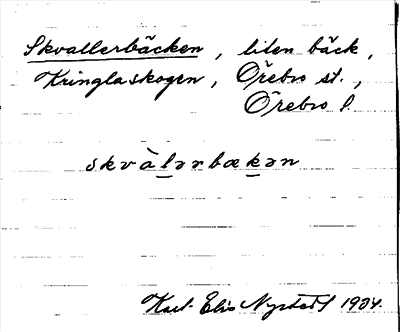 Skvallerbäcken, liten bäck,
Kringlaskogen, Örebro st.,
Örebro l.
skvàlərbækən
Karl-Elis Nystedt 1934.